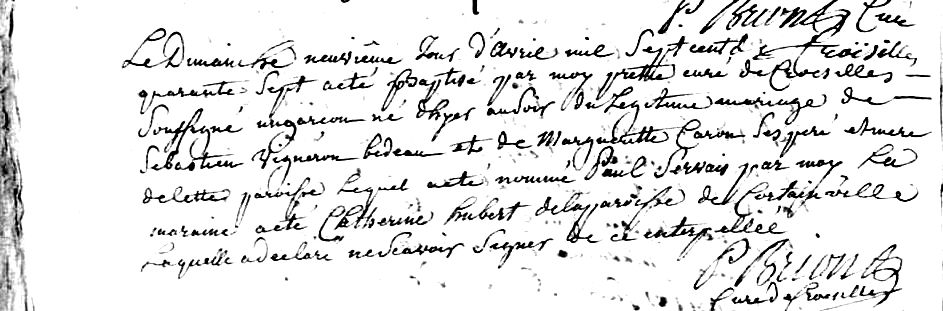 P. Brion Curé
de Croisilles
Le Dimanche neuvième Jour d'Avril mil Sept cent
quarante Sept a eté Baptisé par moy pretre curé de Croiselles
Soussigné un garcon né d'hyer au soir du Legitime mariage de
Sebastien Vigneron bedeau et de Margueritte Caron Ses peré et mere
de cette paroisse Lequel a eté nommé Paul Servais par moy La
maraine a eté Catherine hubert de la paroisse de
Laquelle a declaré ne Scavoir Signer de ce enterpellée
P. Brion
Curé de Croiselles